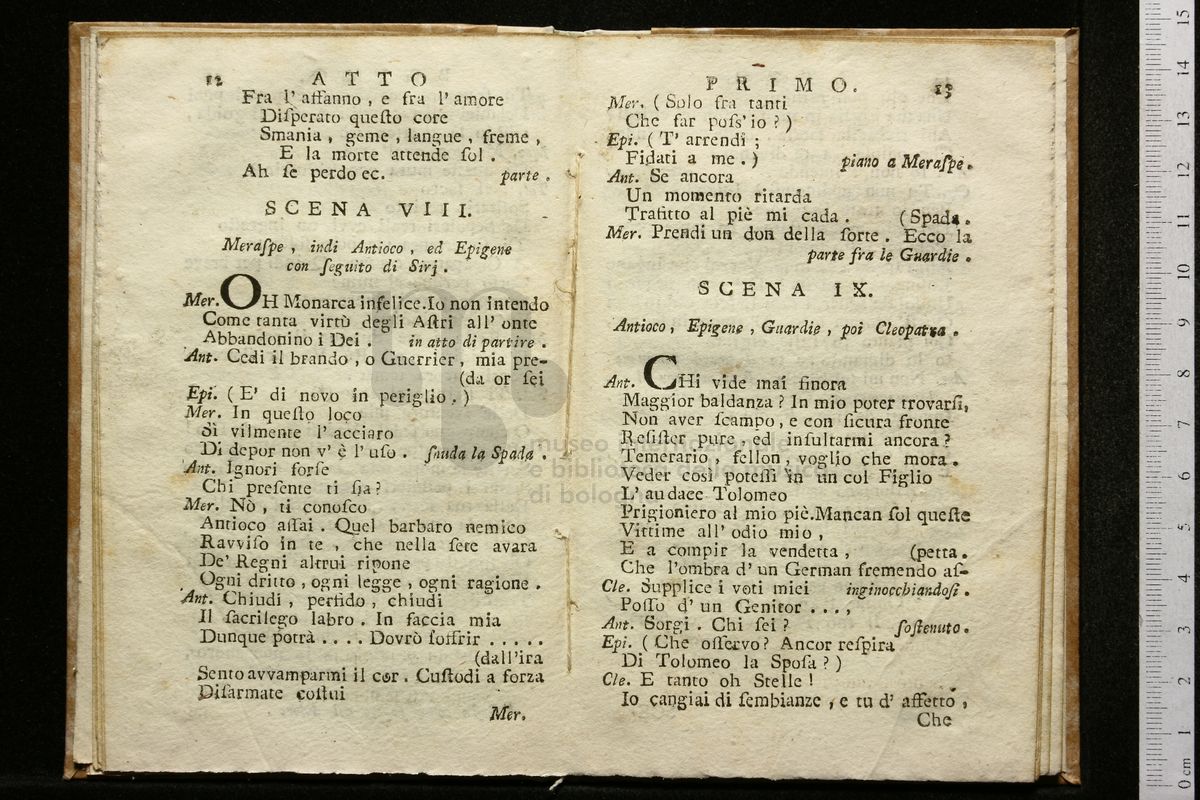 12 ATTO
Fra l' affanno, e fra l' amore
Diſperato queſto core
Smania, geme, langue, freme,
E la morte attende ſol.
Ah ſe perdo ec. parte.
SCENA VIII.
Meraſpe, indi Antioco, ed Epigene
con ſeguito di Sirj.
Mer. OH Monarca infelice. Io non intendo
Come tanta virtù degli Aſtri all' onte
Abbandonino i Dei. in atto di partire.
Ant. Cedi il brando, o Guerrier, mia pre-
(da or ſei
Epi. ( E' di novo in periglio. )
Mer. In queſto loco
Sì vilmente l' acciaro
Di depor non v' è l' uſo. ſnuda la Spada.
Ant. Ignori forſe
Chi preſente ti ſia?
Mer. Nò, ti conoſco
Antioco aſſai. Quel barbaro nemico
Ravviſo in te, che nella ſete avara
De' Regni altrui ripone
Ogni dritto, ogni legge, ogni ragione.
Ant. Chiudi, perfido, chiudi
Il ſacrilego labro. In faccia mia
Dunque potrà .... Dovrò ſoffrir .....
(dall'ira
Sento avvamparmi il cor. Cuſtodi a forza
Diſarmate coſtui
Mer.
PRIMO. 13
Mer. ( Solo fra tanti
Che far poſs' io? )
Epi. ( T' arrendi;
Fidati a me. ) piano a Meraſpe.
Ant. Se ancora
Un momento ritarda
Trafitto al piè mi cada. (Spada.
Mer. Prendi un don della ſorte. Ecco la
parte fra le Guardie.
SCENA IX.
Antioco, Epigene, Guardie, poi Cleopatra.
Ant. CHi vide mai finora
Maggior baldanza? In mio poter trovarſi,
Non aver ſcampo, e con ſicura fronte
Reſiſter pure, ed inſultarmi ancora?
Temerario, fellon, voglio che mora.
Veder così poteſſi in un col Figlio
L' audace Tolomeo
Prigioniero al mio piè. Mancan ſol queſte
Vittime all' odio mio,
E a compir la vendetta, (petta.
Che l'ombra d' un German fremendo aſ-
Cle. Supplice i voti miei inginocchiandoſi.
Poſſo d' un Genitor ....,
Ant. Sorgi. Chi ſei? ſoſtenuto.
Epi. ( Che oſſervo? Ancor reſpira
Di Tolomeo la Spoſa? )
Cle. E tanto oh Stelle!
Io cangiai di ſembianze, e tu d' affetto,
Che
museo internazionale
e biblioteca della musica
di bologna
15
14
13
12
11
10
9
8
7
6
5
4
3
2
1
0 cm